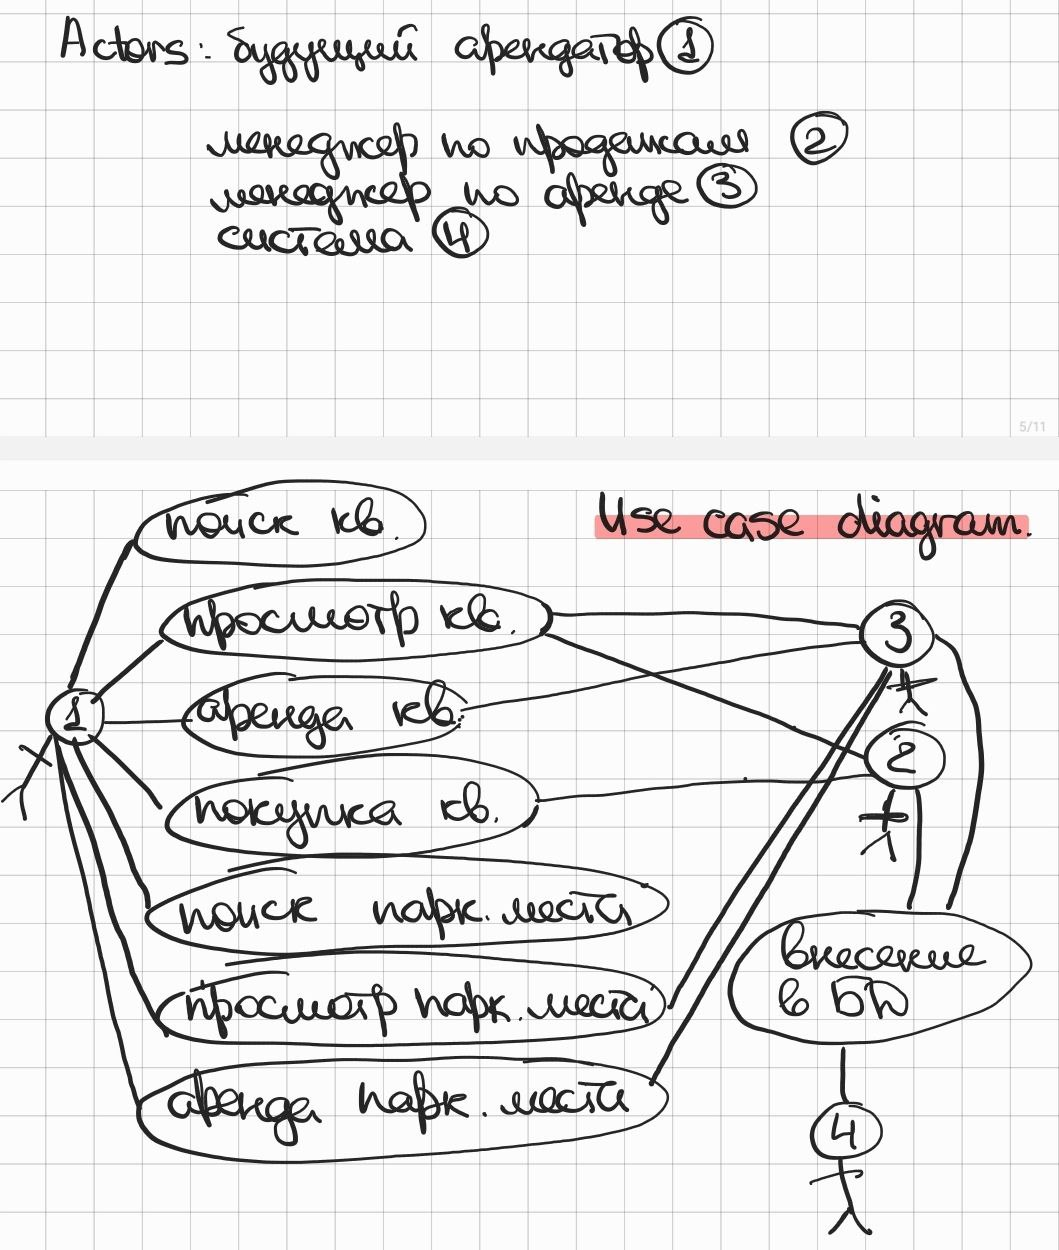 Actors: будущий арендатор 1
менеджер по продажам 2
менеджер по аренде 3
система 4
5/11
Use case diagram.
поиск кв.
просмотр кв.
аренда кв.
покупка кв.
поиск парк. места
просмотр парк. места
аренда парк. места
1
3
2
внесение
в БД
4